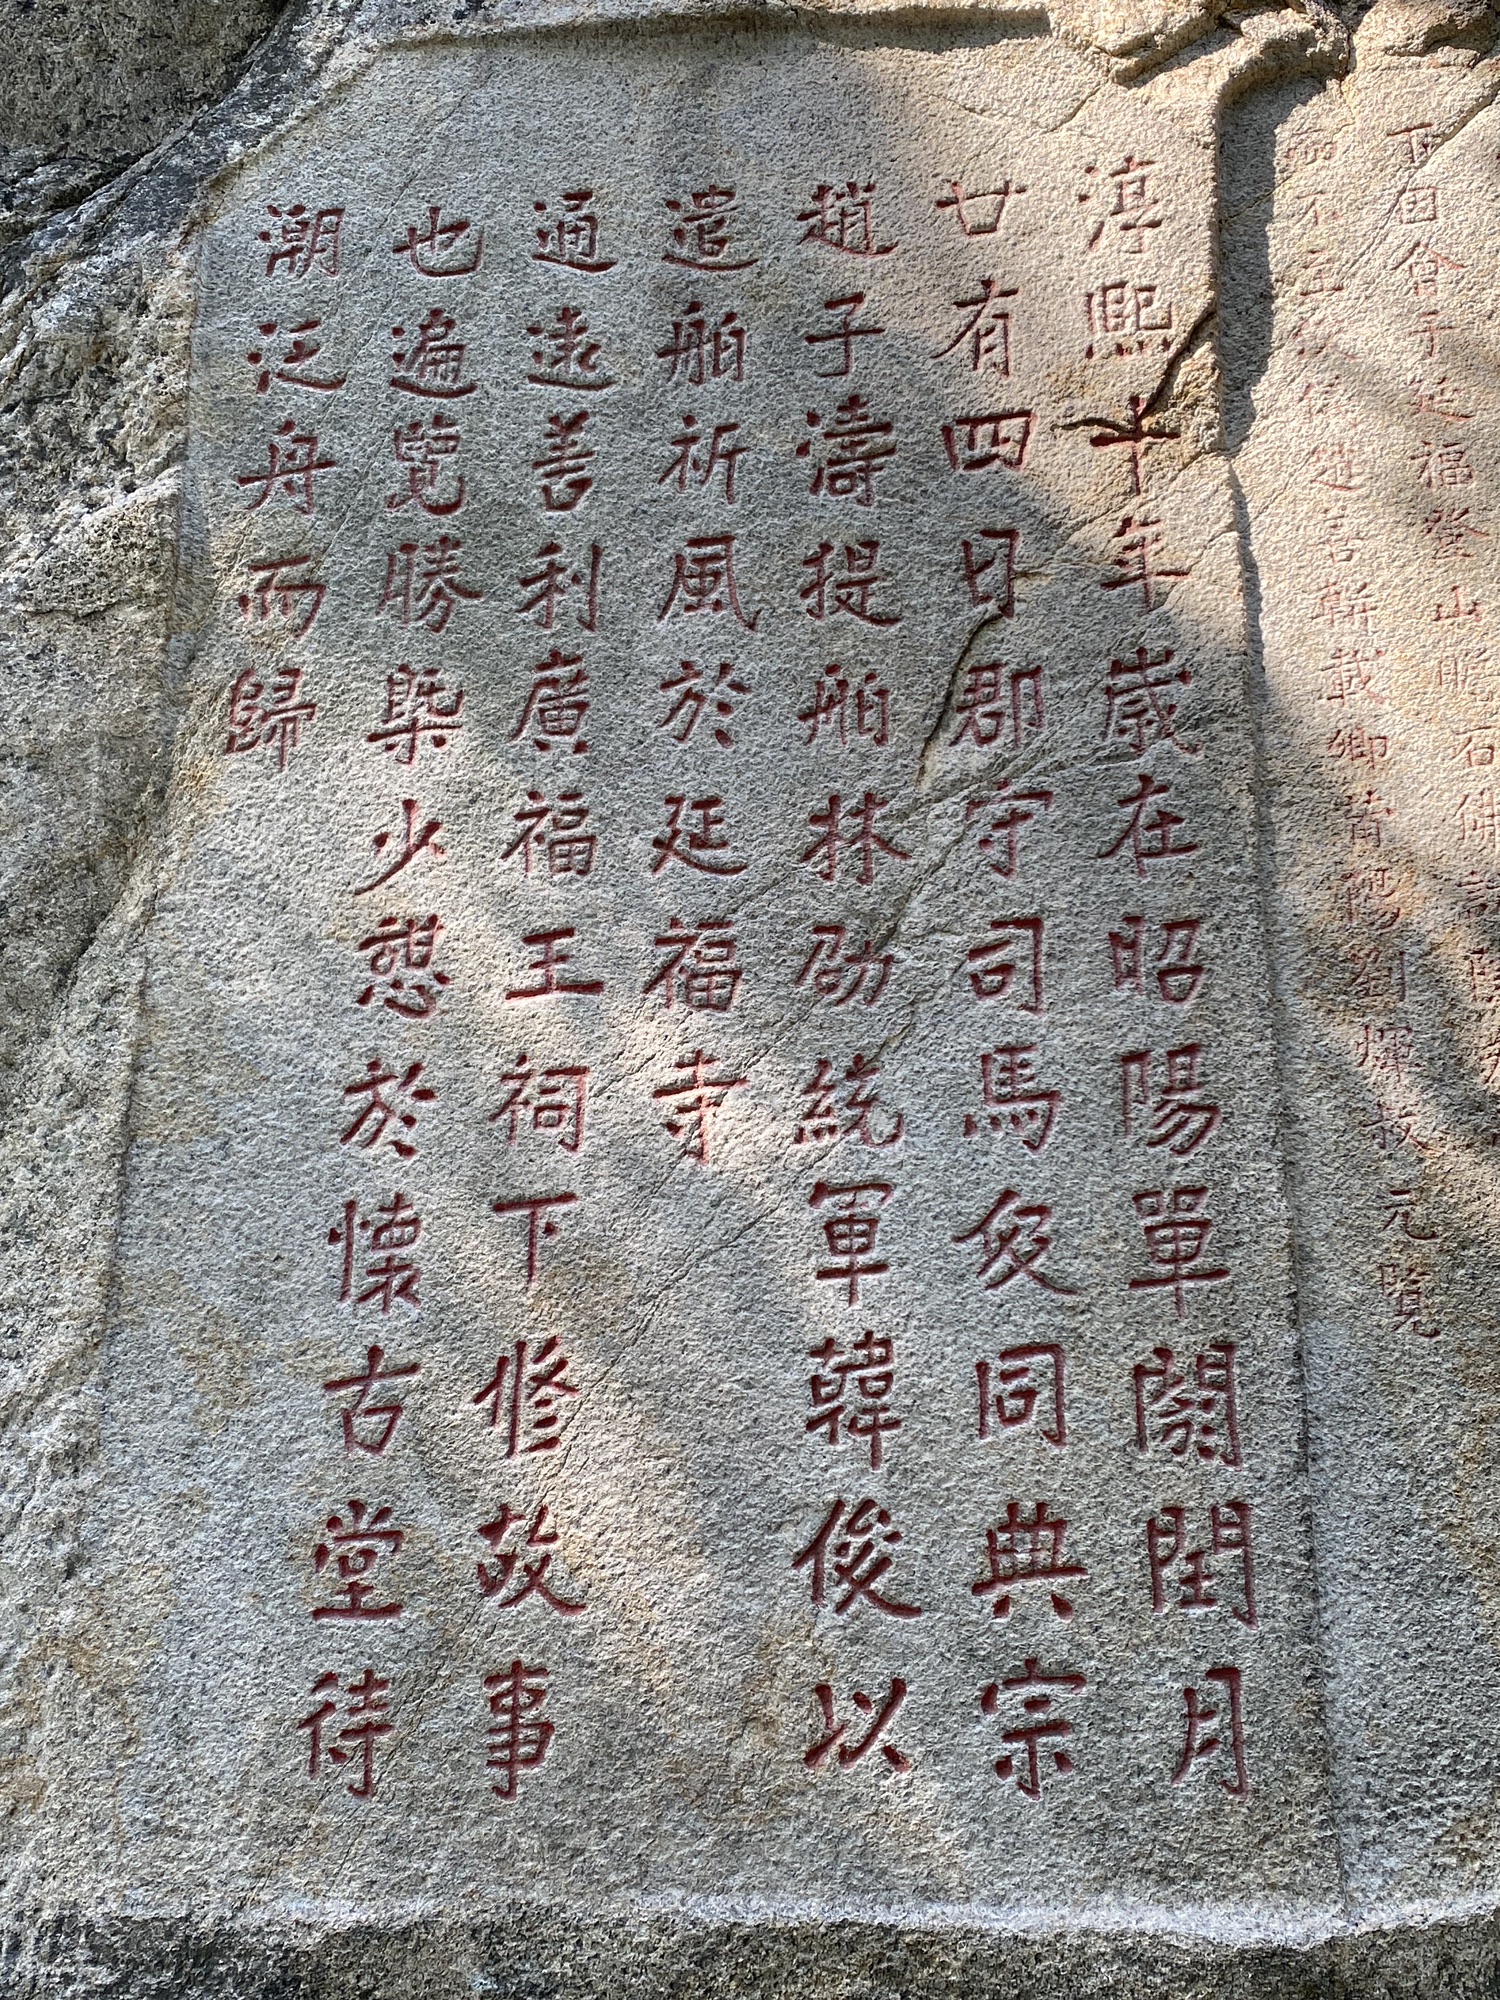 會于延福登山石佛
而不至載卿莆陽劉元覽
淳熙十年歲在昭陽單閼閏月
廿有四日郡守司馬伋同典宗
趙子濤提舶林劭統軍韓俊以
遣舶祈風於延福寺
通遠善利廣福王祠下修故事
也遍覽勝槩少憩於懷古堂待
潮泛舟而歸